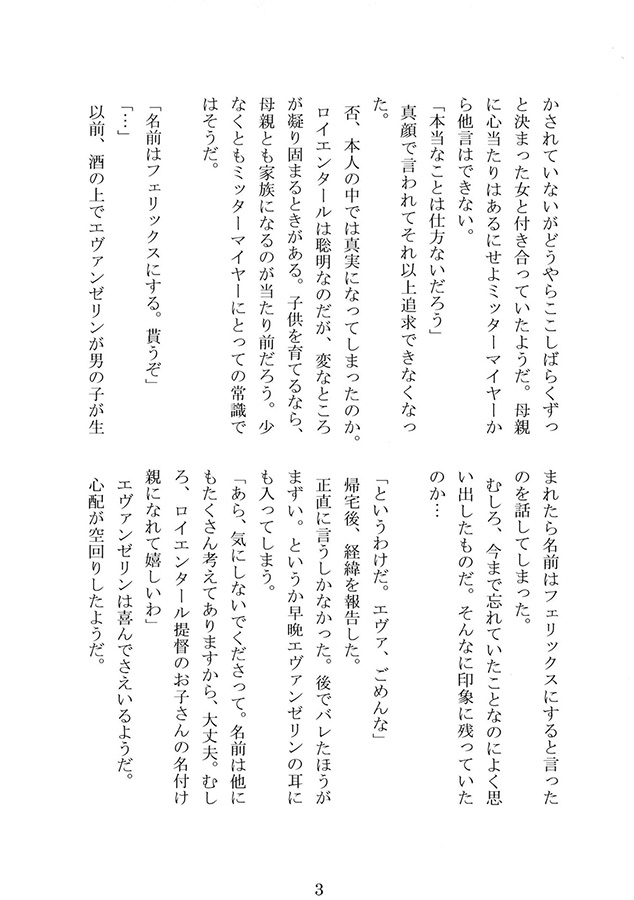 かされていないがどうやらここしばらくずっ
と決まった女と付き合っていたようだ。母親
に心当たりはあるにせよミッターマイヤーか
ら他言はできない。
「本当なことは仕方ないだろう」
真顔で言われてそれ以上追求できなくなっ
た。
否、本人の中では真実になってしまったのか。
ロイエンタールは聡明なのだが、変なところ
が凝り固まるときがある。子供を育てるなら、
母親とも家族になるのが当たり前だろう。少
なくともミッターマイヤーにとっての常識で
はそうだ。
「名前はフェリックスにする。貰うぞ」
「…」
以前、酒の上でエヴァンゼリンが男の子が生
まれたら名前はフェリックスにすると言った
のを話してしまった。
むしろ、今まで忘れていたことなのによく思
い出したものだ。そんなに印象に残っていた
のか…
「というわけだ。エヴァ、ごめんな」
帰宅後、経緯を報告した。
正直に言うしかなかった。後でバレたほうが
まずい。というか早晩エヴァンゼリンの耳に
も入ってしまう。
「あら、気にしないでくださって。名前は他に
もたくさん考えてありますから、大丈夫。むし
ろ、ロイエンタール提督のお子さんの名付け
親になれて嬉しいわ」
エヴァンゼリンは喜んでさえいるようだ。
心配が空回りしたようだ。
3